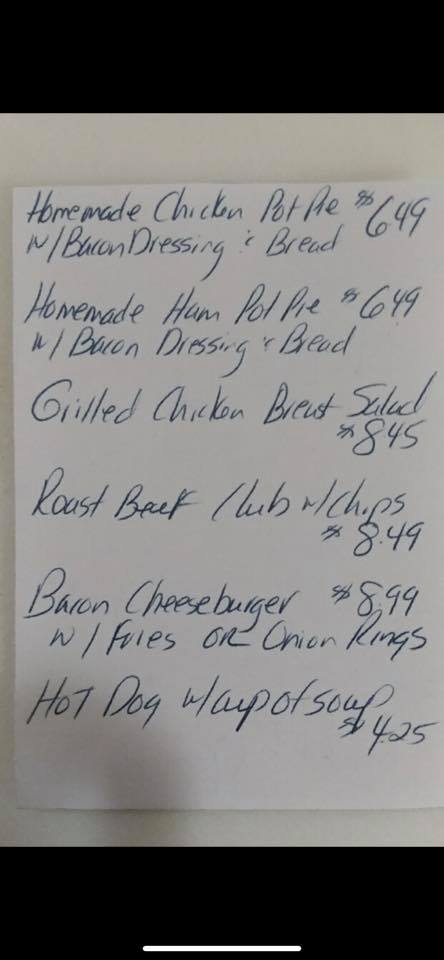 Homemade Chicken Pot Pie $6.49
w/Bacon Dressing & Bread
Homemade Ham Pot Pie $6.49
w/Bacon Dressing & Bread
Grilled Chicken Breast Salad
$8.45
Roast Beef Club w/Chips
$8.49
Bacon Cheeseburger $8.99
w/Fries OR Onion Rings
Hot Dog w/cup of soup
$4.25